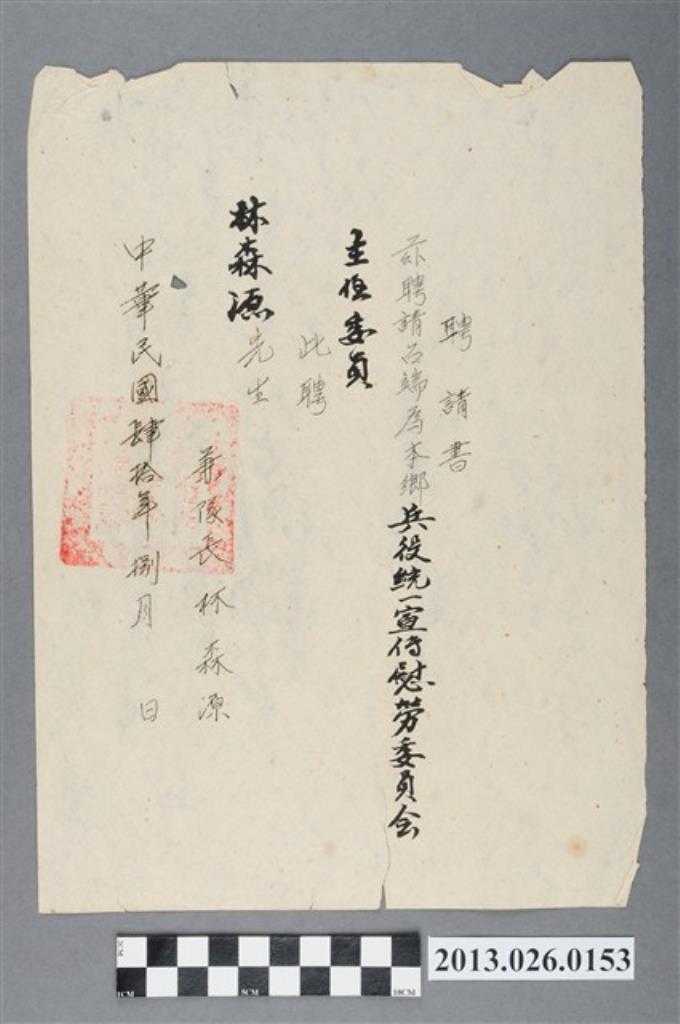 聘請書
茲聘請台端為本鄉兵役統一宣傳慰勞委員会
主任委員
此聘
林森源先生
兼隊長林森源
中華民國肆拾年捌月 日
1CM
5CM
10CM
2013.026.0153